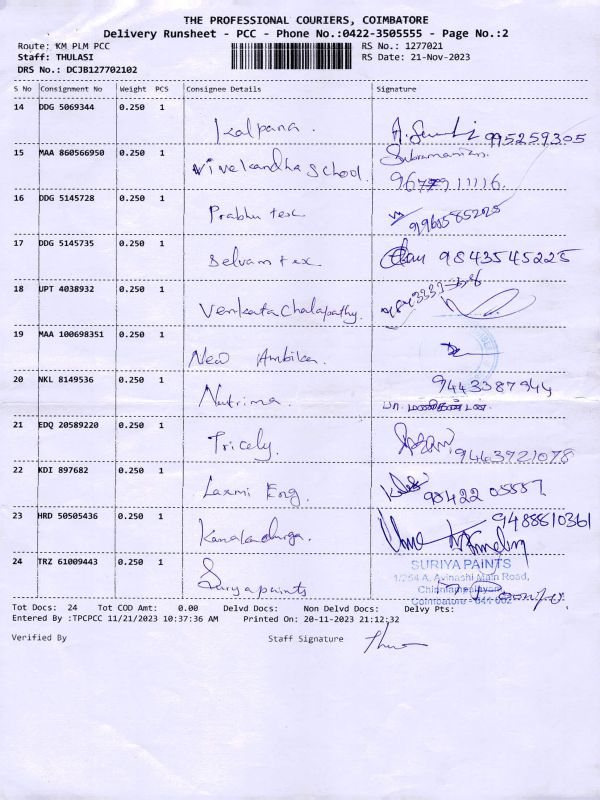 THE PROFESSIONAL COURIERS, COIMBATORE
Delivery Runsheet - PCC - Phone No.:0422-3505555 - Page No.:2
Route: KM PLM PCC
RS No.: 1277021
Staff: THULASI
RS Date: 21-Nov-2023
DRS No.: DCJB127702102
S No Consignment No Weight PCS Consignee Details Signature
14 DDG 5069344 0.250 1
Kalpana. 995259305
15 MAA 860566950 0.250 1
Vivekandha School. Subramanian.
16 DDG 5145728 0.250 1
Prabhu tex
17 DDG 5145735 0.250 1
Selvam tex 9843545225
18 UPT 4038932 0.250 1
Venkata Chalapathy.
19 MAA 100698351 0.250 1
New Ambika.
20 NKL 8149536 0.250 1
Nutrima
பா. மணிகண்டன்.
21 EDQ 20589220 0.250 1
Tricely. 9443921078
22 KDI 897682 0.250 1
Laxmi Eng. 98422 05557
23 HRD 50505436 0.250 1
9488610361
24 TRZ 61009443 0.250 1
Surya paints
SURIYA PAINTS
1/254 A, Avinashi Main Road,
Chinniampalayam,
Coimbatore - 641 062
Tot Docs: 24 Tot COD Amt: 0.00 Delvd Docs: Non Delvd Docs: Delvy Pts:
Entered By :TPCPCC 11/21/2023 10:37:36 AM Printed On: 20-11-2023 21:12:32
Verified By Staff Signature